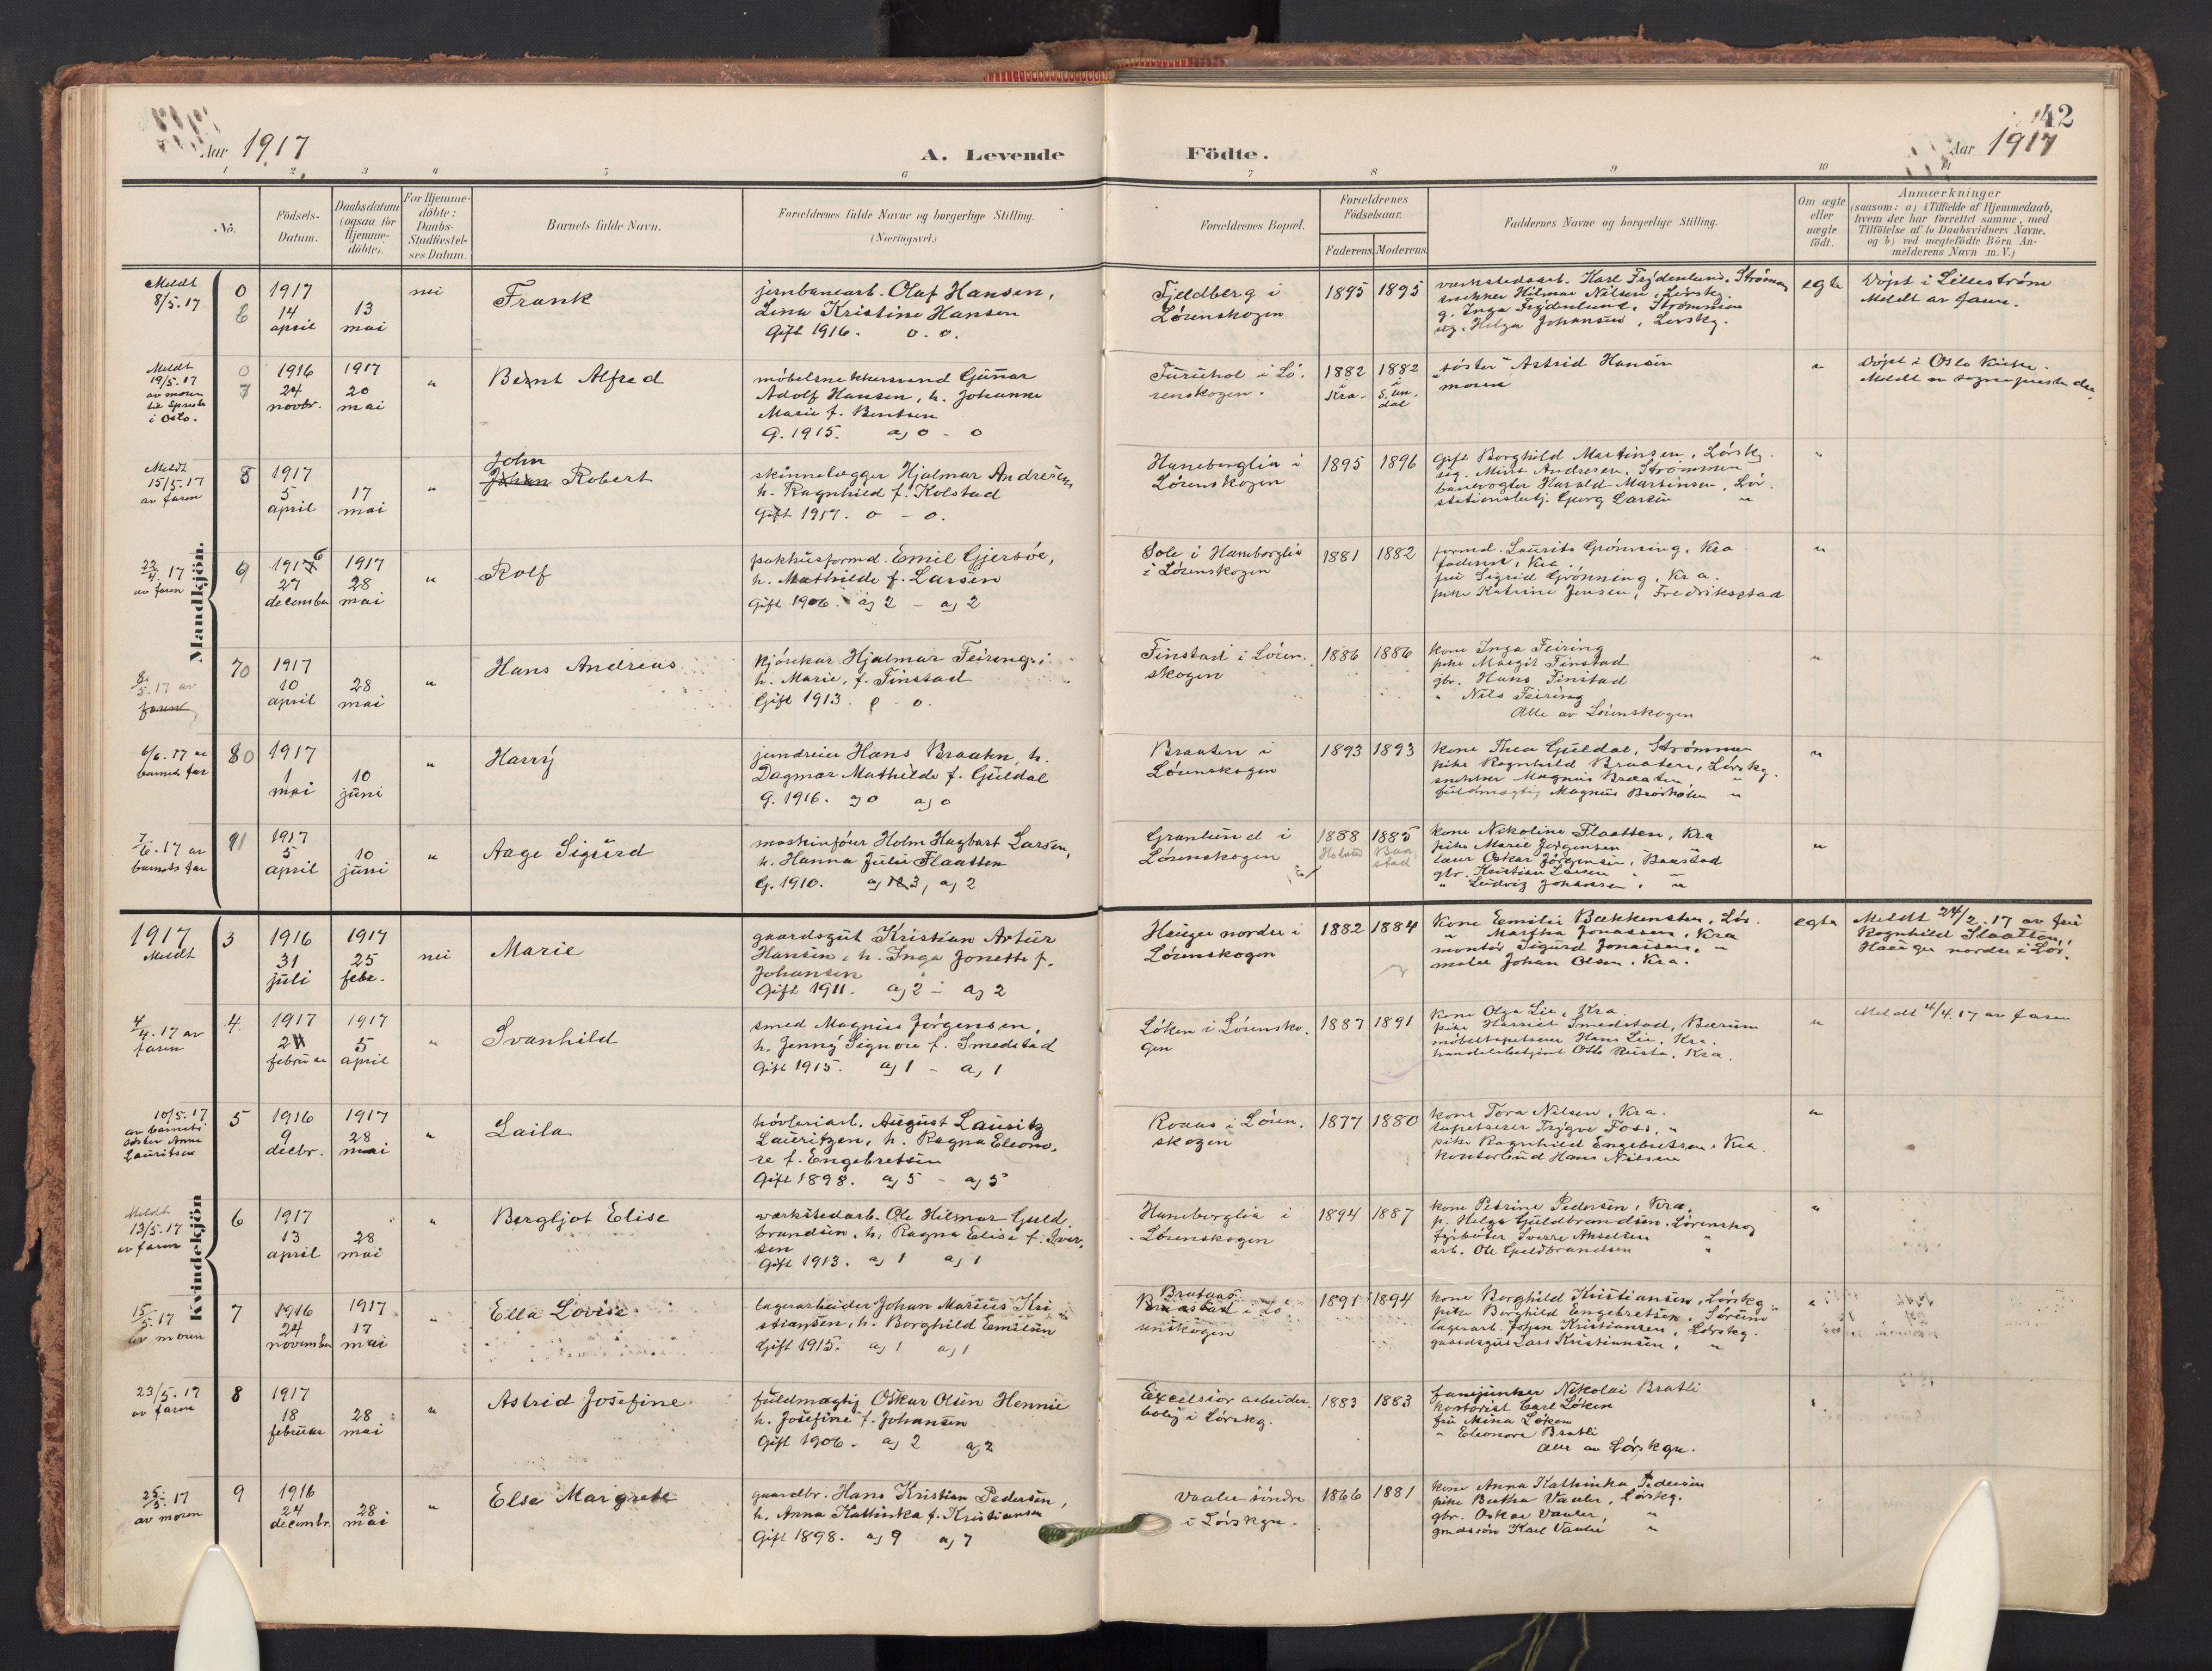 Aar 1917
A. Levende
Födte.
42
Aar 1917
1 2 3 4 5 6 7 8 9 10
No.
Födsels-
Datum.
Daabsdatum
(ogsaa for
Hjemme-
döbte).
For Hjemme-
döbte:
Daabs-
Stadfæstel-
ses Datum.
Barnets fulde Navn.
Forældrenes fulde Navne og borgerlige Stilling.
(Næringsvei.)
Forældrenes Bopæl.
Forældrenes
Födselsaar.
Faderens. Moderens.
Faddernes Navne og borgerlige Stilling.
Om ægte
eller
uægte
födt.
Anmærkninger
(saasom: a) i Tilfælde af Hjemmedaab,
hvem der har forrettet samme, med
Tilföielse af to Daabsvidners Navne.
og b) ved uægtefödte Börn An-
melderens Navn m.V.)
Mandkjön.
Meldt
8/5.17
1917
14
april
13
mai
nei
Frank
jernbanearb. Olaf Hansen,
Lina Kristine Hansen
Gift 1916. o. o.
Fjeldberg i
Lørenskogen
1895 1895
verkstedsarb. Karl Frydenlund, Strømmen
snekker Hilmar Nilsen, Lørskg.
g. Inga Frydenlund, Strømmen
ug. Helga Johansen, Lørskg.
egte
Døpt i Lillestrøm
Meldt av faren.
Meldt
19/5.17
av moren
i Oslo.
7
1916
24
novbr.
1917
20
mai
"
Bernt Alfred
møbelsnekkersvend Gunnar
Adolf Hansen, h. Johanne
Marie f. Bentsen
G. 1915. a) o - o
Furuhol i Lø-
renskogen.
1882 1882
Kra.
søster Astrid Hansen
moren
"
Døpt i Oslo Kirke.
Meldt
15/5.17
av faren
8
1917
5
april
17
mai
"
John
Johan Robert
skinnelægger Hjalmar Andresen,
h. Ragnhild f. Kolstad
Gift 1917. o - o.
Haneborglia i
Lørenskogen
1895 1896
Gift Borghild Martinsen, Lørskg.
ug. Mina Andresen, Strømmen
banevogter Harald Martinsen, Lør.
stationsbetj. Georg Larsen "
"
22/4.17
av faren
9
1916
27
december
1917
28
mai
"
Rolf
pakhusformd. Emil Gjersøe,
h. Mathilde f. Larsen
Gift 1906. a) 2 - a) 2
Sole i Haneborglia
i Lørenskogen
1881 1882
formd. Laurits Grønning, Kra.
faderen, Kra.
fru Sigrid Grønning, Kra.
pike Katrine Jensen, Fredriksstad
"
8/5.17 av
faren
70
1917
10
april
28
mai
"
Hans Andreas
kjørekar Hjalmar Feiring
h. Marie, f. Finstad
Gift 1913. o - o.
Finstad i Løren-
skogen
1886 1886
kone Inga Feiring
pike Margit Finstad
gbr. Hans Finstad
" Nils Feiring
Alle av Lørenskogen
"
6/6.17 av
barnets far
80
1917
1
mai
10
juni
"
Harry
jerndreier Hans Braaten, h.
Dagmar Mathilde f. Guldal
G. 1916. a) o a) o
Braaten i
Lørenskogen
1893 1893
kone Thea Guldal, Strømmen
pike Ragnhild Braaten, Lørskg.
snekker Magnus Braaten, "
fuldmægtig Magnus "
"
7/6.17 av
barnets far
91
1917
5
april
10
juni
"
Aage Sigurd
maskinfører Holm Hagbart Larsen,
h. Hanna Julie Flaatten
G. 1910. a) 3, a) 2
Granlund i
Lørenskogen
1888 1885
kone Nikoline Flaatten, Kra
pike Marie Jørgensen
Oskar Jørgensen, Baastad
gbr. Kristian Larsen "
" Ludvig Johansen, "
"
Kvindekjön
1917
Meldt
3
1916
31
juli
1917
25
febr.
nei
Marie
gaardsgut Kristian Artur
Hansen, h. Inga Jonette f.
Johansen
Gift 1911. a) 2 - a) 2
Hauger nordre i
Lørenskogen
1882 1884
Kone Emilie Bækkensten, Lør.
" Martha Jonassen, Kra
montør Sigurd Jonassen, "
maler Johan Olsen, Kra.
egte
Meldt 24/2.17 av fru
Ragnhild Flaatten,
Hauger nordre i Lør.
4/4.17 av
faren
4.
1917
24
februar
1917
5
april
"
Svanhild
smed Magnus Jørgensen,
h. Jenny Signora f. Smedstad
Gift 1915. a) 1 - a) 1
Løken i Lørensko-
gen
1887 1891
kone Olga Lie, Kra.
pike Harriet Smedstad, Bærum
møbeltapetserer Hans Lie, Kra.
handelsbetjent Otto Rusta, Kra.
"
Meldt 4/4.17 av faren
10/5.17
av barnets
søster Anna
Lauritsen
5
1916
9
decbr.
1917
28
mai
"
Laila
høvleriarb. August Lauritz
Lauritzen, h. Ragna Eleono-
re f. Engebretsen
Gift 1898. a) 5 - a) 5
Roaas i Løren-
skogen
1877 1880
kone Tora Nilsen, Kra.
tapetserer Trygve Foss, "
pike Ragnhild Engebretsen, Kra.
kontorbud Hans Nilsen
"
Meldt
13/5.17
av faren
6
1917
13
april
28
mai
"
Bergljot Elise
værkstedarb. Ole Hilmar Guld-
brandsen, h. Ragna Elise f. Iver-
sen
Gift 1913. a) 1 a) 1
Haneborglia i
Lørenskogen
1894 1887
kone Petrine Pedersen, Kra.
p. Helga Guldbrandsen, Lørenskog
fyrbøter Sverre Akselsen "
arb. Ole Guldbrandsen "
"
15/5.17
av moren
7
1916
24
november
1917
17
mai
"
Ella Lovise
lagerarbeider Johan Marius Kri-
stiansen, h. Borghild Emilsen
Gift 1915. a) 1 a) 1
Brataas
i Lø-
renskogen
1891 1894
kone Borghild Kristiansen, Lørskg.
pike Borghild Engebretsen, Sørum
lagerarb. Johan Kristiansen, Lørskg.
gaardsgut Lars Kristiansen, "
"
23/5.17
av faren
8
1917
18
februar
28
mai
"
Astrid Josefine
fuldmægtig Oskar Olsen Hennie
h. Josefine f. Johansen
Gift 1906. a) 2 a) 2
Excelsior arbeider-
bolig i Lørskg.
1883 1883
fanejunker Nikolai Bratli
kontorist Carl Løken
fru Mina Løken
" Eleonora Bratli
Alle av Lørskgn.
25/5.17
av moren
9
1916
24
decembr.
28
mai
"
Else Margrete
gaardbr. Hans Kristian Pedersen,
h. Anna Kathinka f. Kristiansen
Gift 1898. a) 9 a) 7
Vaaler søndre
i Lørskgn.
1866 1881
kone Anna Kathinka Pedersen
pike Bertha Vaaler, Lørskg.
gbr. Oskar Vaaler, "
grdssøn Karl Vaaler "